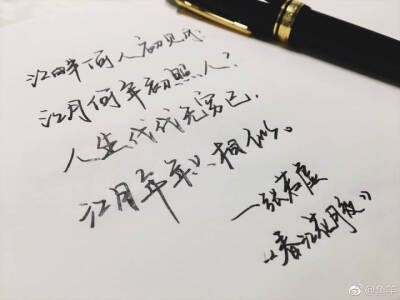 江畔何人初见月?
江月何年初照人?
人生代代无穷已,
江月年年只相似。
—张若虚
《春江花月夜》
@鱼羊